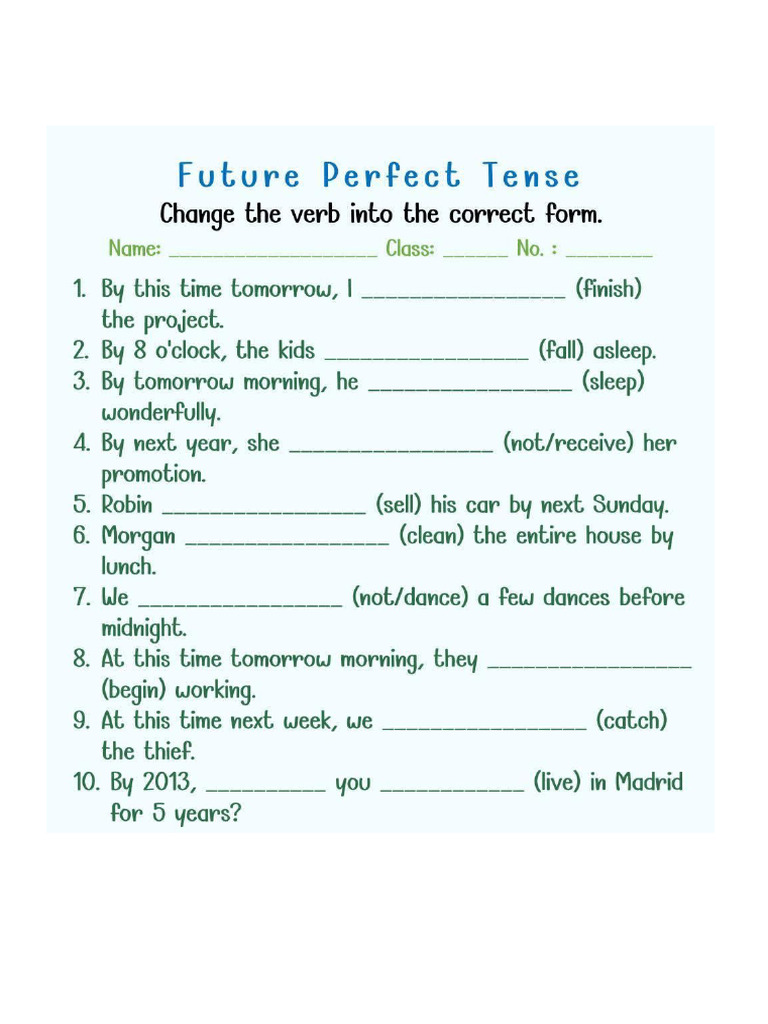 Future Perfect Tense
Change the verb into the correct form.
Name: ___________________ Class: ______ No. : ________
1. By this time tomorrow, I _________________ (finish)
the project.
2. By 8 o'clock, the kids _________________ (fall) asleep.
3. By tomorrow morning, he _________________ (sleep)
wonderfully.
4. By next year, she _________________ (not/receive) her
promotion.
5. Robin _________________ (sell) his car by next Sunday.
6. Morgan _________________ (clean) the entire house by
lunch.
7. We _________________ (not/dance) a few dances before
midnight.
8. At this time tomorrow morning, they _________________
(begin) working.
9. At this time next week, we _________________ (catch)
the thief.
10. By 2013, __________ you ____________ (live) in Madrid
for 5 years?